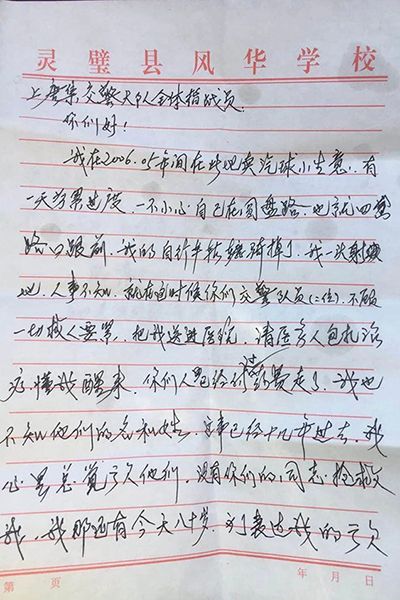 灵璧县风华学校
上唐集交警大队全体指战员.
你们好!
我在2006.05年间在此地卖汽球小生意,有
一天劳累过度.一不小心自己在圆盘路.也就四
路口跟前.我的自行车转掉了.我一头
地.人事不知.就在这时候你们交警队员(二位).不顾
一切救人要紧.把我送进医院.请医务人包扎治
疗.我醒来.你们人已经走了.我也
不知他们的名和姓.这事已经十几年过去.我
心里总觉亏欠他们.没有你们的同志抢救
我.我那还有今天八十岁.为表达我的亏欠
第 页 年 月 日